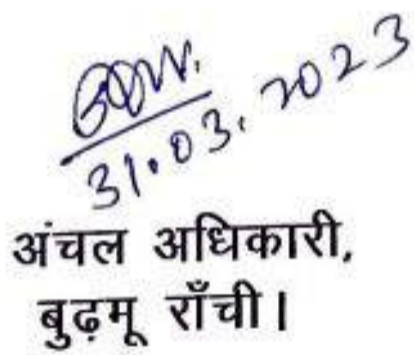 31.03.2023
अंचल अधिकारी,
बुढ़मू राँची।